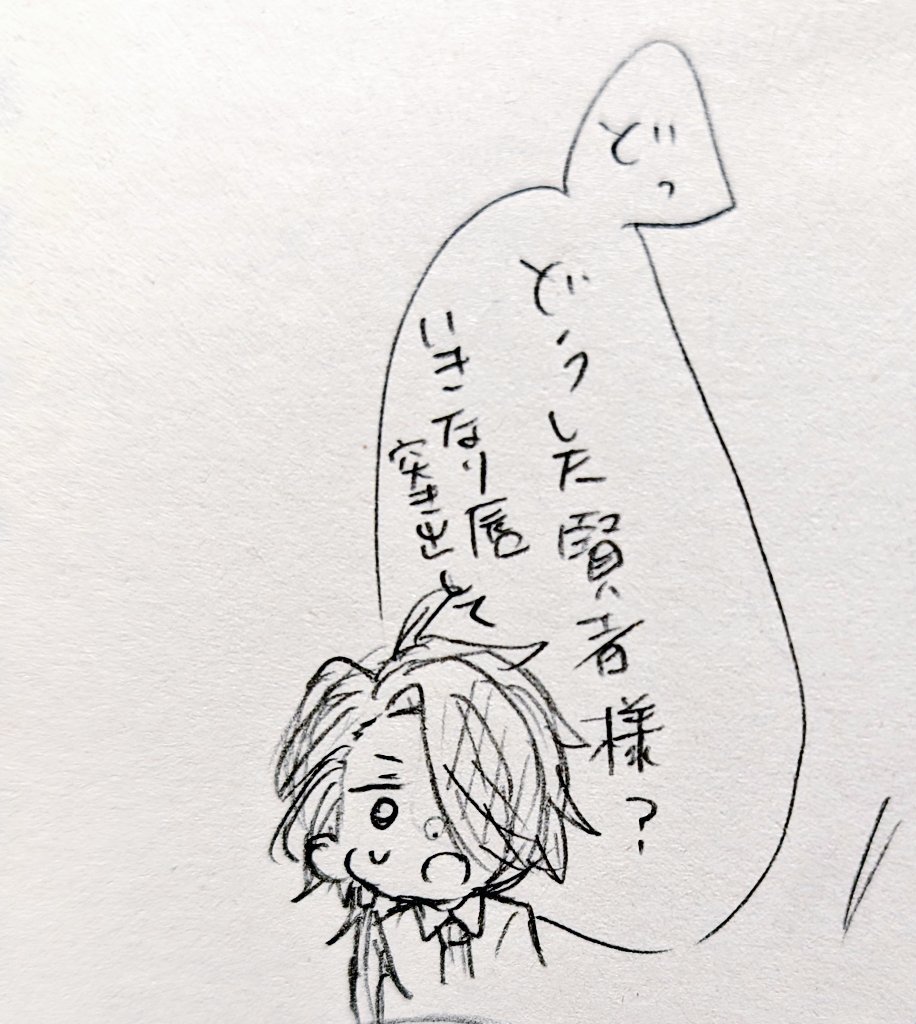 どっ
どうした賢者様?
いきなり唇
突き出して